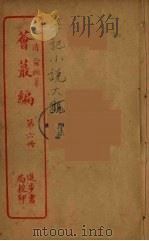 筆記小說大觀
清俞樾著
薈蕞編
第六冊
進步書
局校印